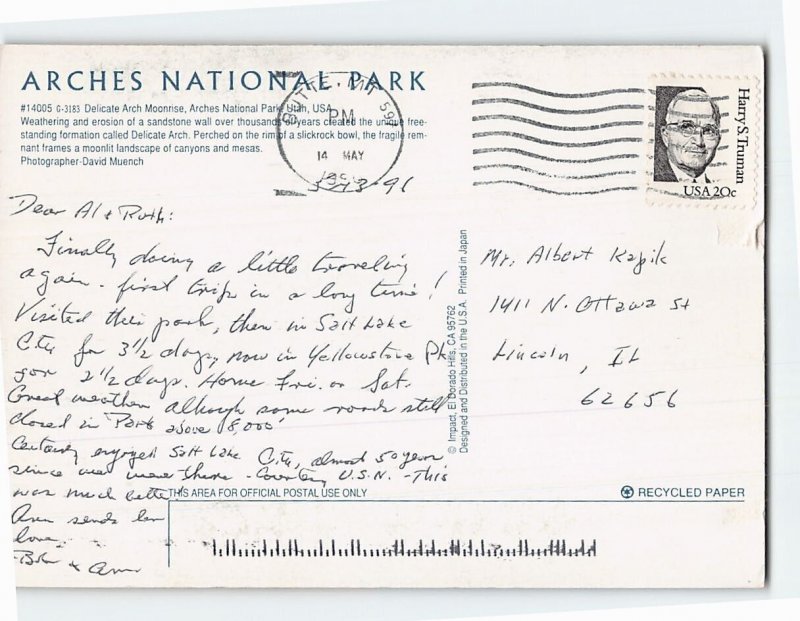 ARCHES NATIONAL PARK
#14005 G-3183 Delicate Arch Moonrise, Arches National Park, Utah, USA
Weathering and erosion of a sandstone wall over thousands of years created the unique free-
standing formation called Delicate Arch. Perched on the rim of a slickrock bowl, the fragile rem-
nant frames a moonlit landscape of canyons and mesas.
Photographer-David Muench
BUTTE, MT 597
PM
14 MAY
Harry S. Truman
USA 20c
5-13-96
Dear Al & Ruth:
Finally doing a little traveling
again - first trip in a long time!
Visited this park, then in Salt Lake
City for 3 1/2 days, now in Yellowstone Pk
for 2 1/2 days. Home Fri. or Sat.
Great weather although some roads still
closed in Park above 8,000'
Certainly enjoyed Salt Lake City, almost 50 years
since was there - Courtesy U.S.N. - This
was much better
Ann sends her
love.
Bob & Ann
© Impact, El Dorado Hills, CA 95762
Designed and Distributed in the U.S.A. Printed in Japan
Mr. Albert Kapik
1411 N. Ottawa St
Lincoln, IL
62656
THIS AREA FOR OFFICIAL POSTAL USE ONLY
RECYCLED PAPER